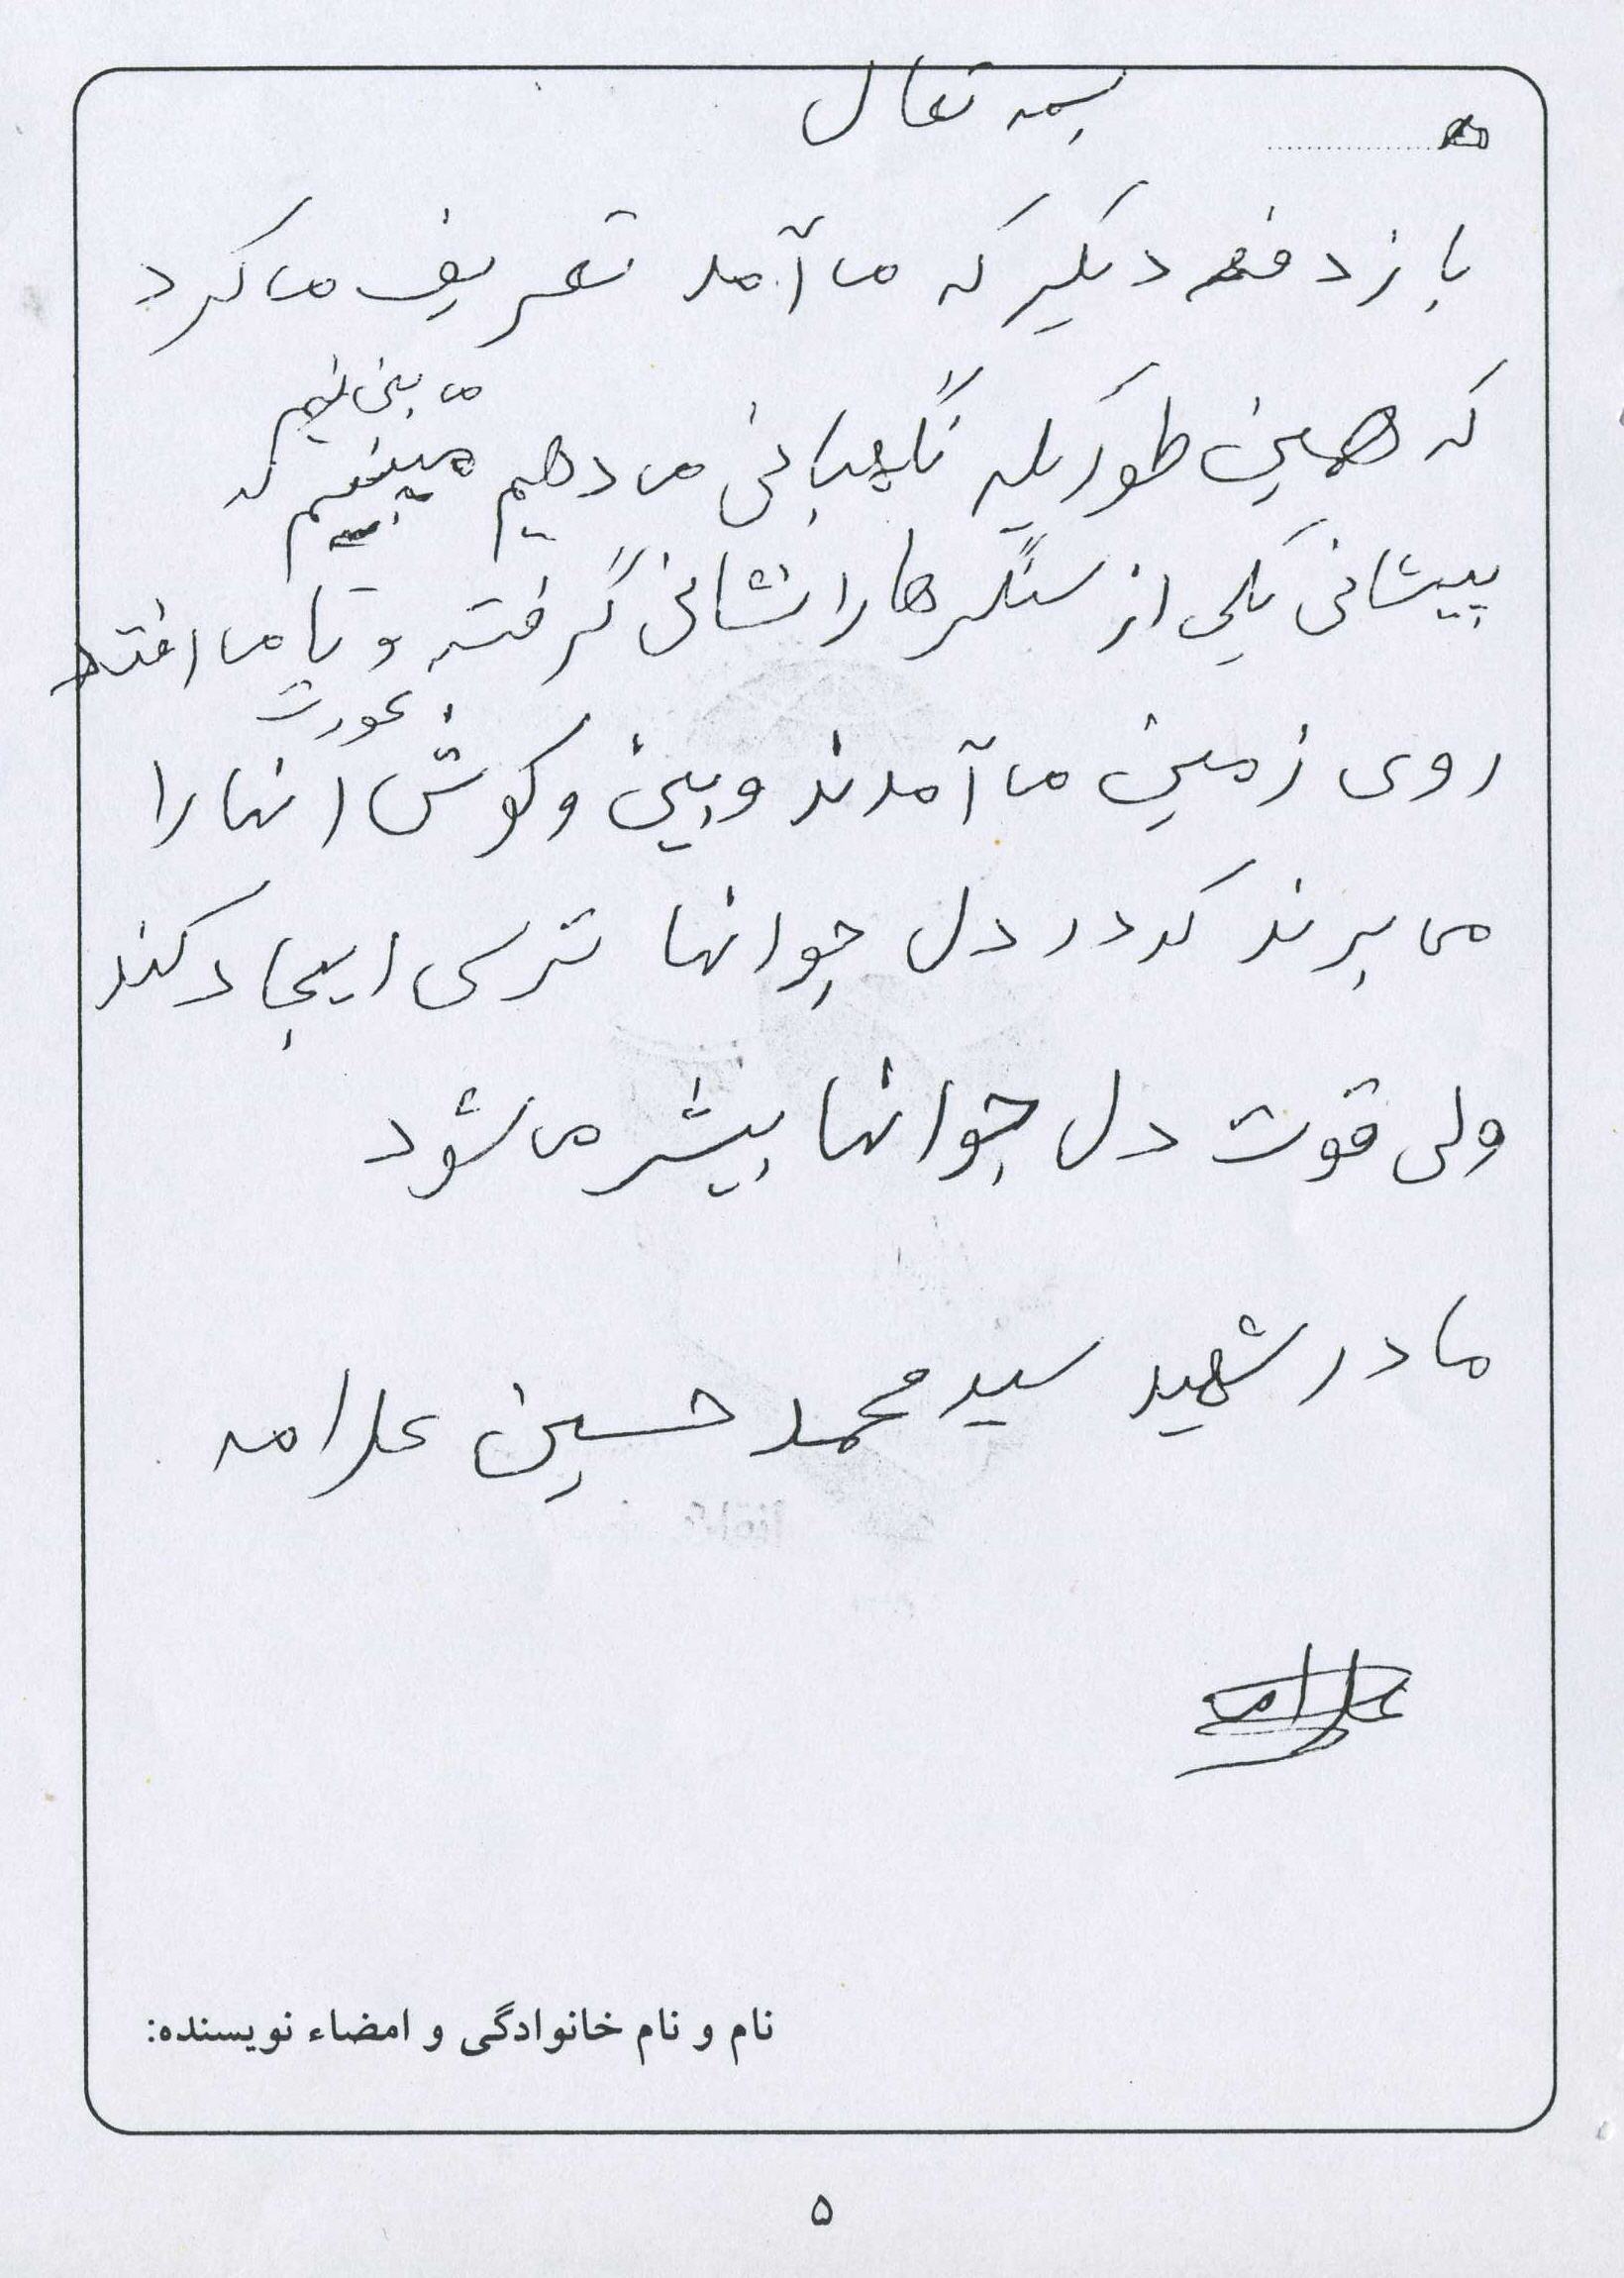 بسمه تعالی
باز دفعه دیگر که می آمد تعریف می کرد
که همین طور یکه نگهبانی می دهیم می بینیم که
پیشانی یکی از سنگرها را نشانی گرفته و تا می افتد
روی زمین می آمدند و بینی و گوش انها را
عورت
می برند که در دل جوانها ترسی ایجاد کند
ولی قوت دل جوانها بیشتر می شود
مادر شهید سید محمد حسین علامه
علامه
نام و نام خانوادگی و امضاء نویسنده:
۵